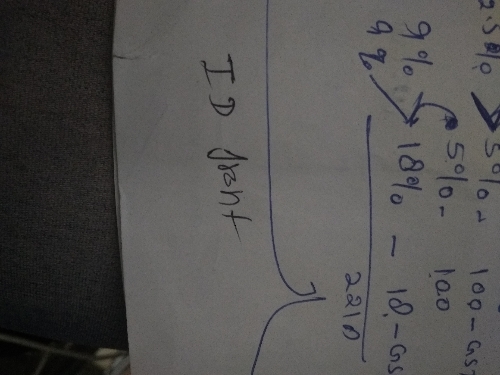 2.5% > 5% - 100 - GST
9% 5% - 100
9% 18% - 18 - GS
2210
ID front